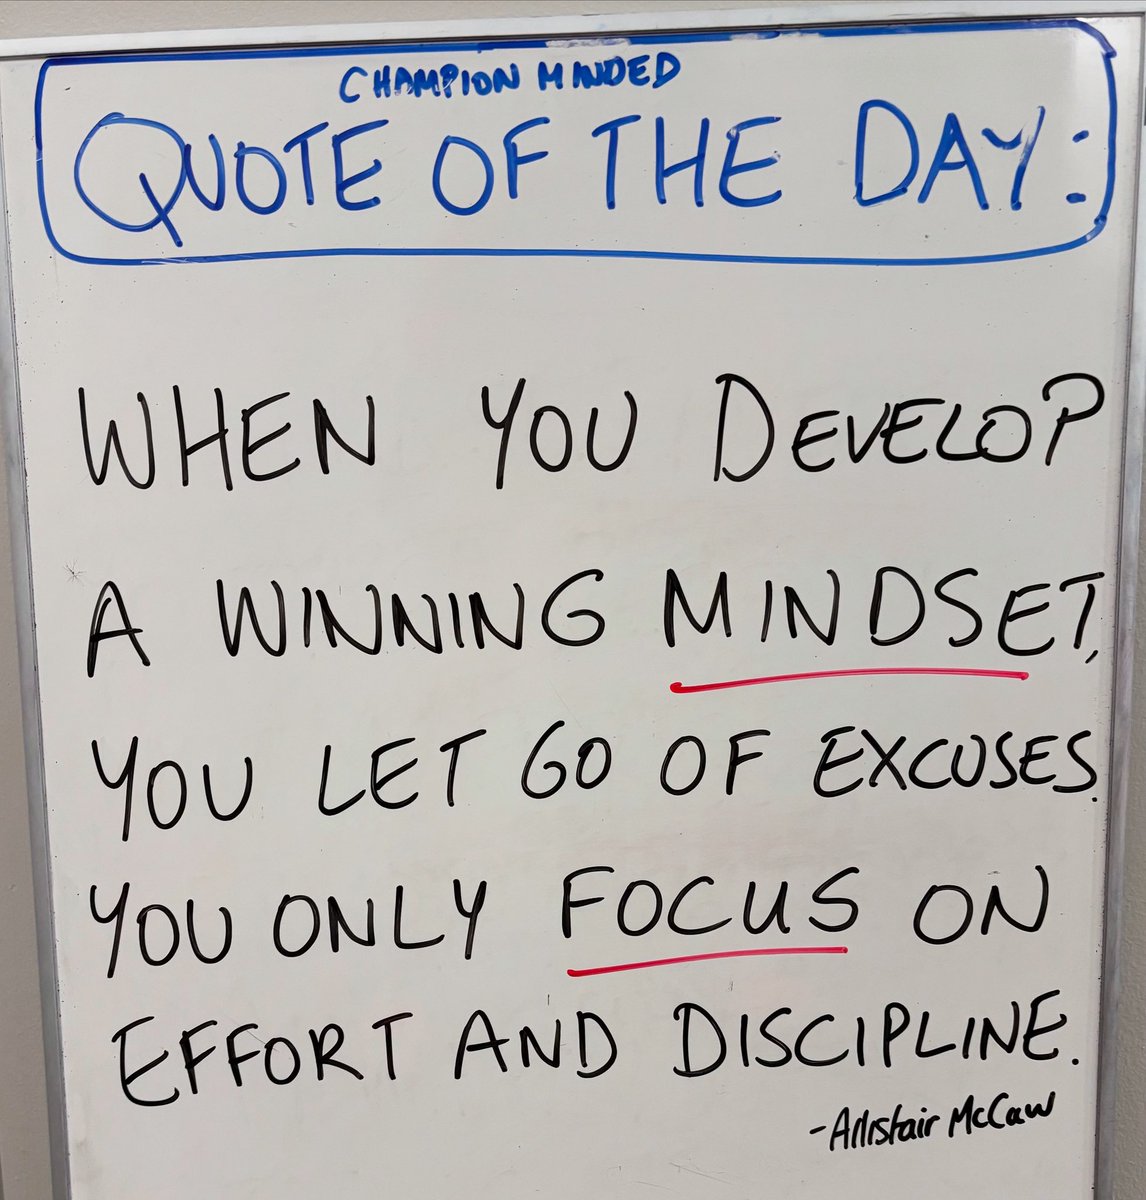 CHAMPION MINDED
QUOTE OF THE DAY:
WHEN YOU DEVELOP
A WINNING MINDSET,
YOU LET GO OF EXCUSES.
YOU ONLY FOCUS ON
EFFORT AND DISCIPLINE.
-Allistair McCaw